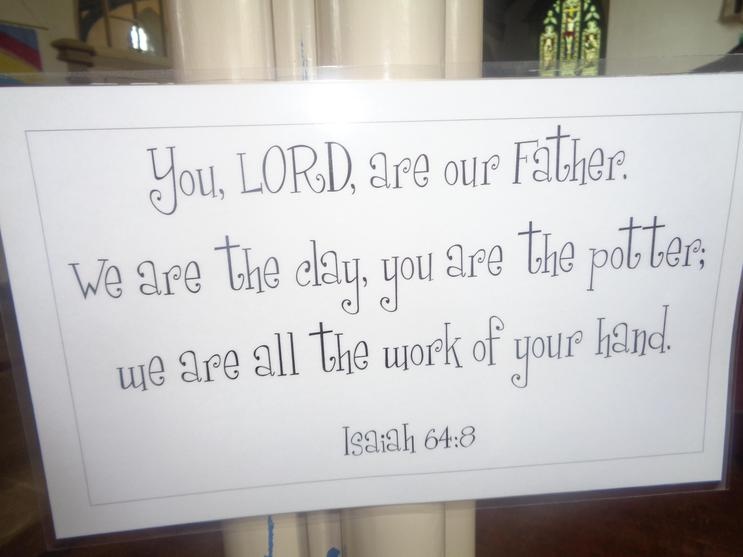 You, LORD, are our Father.
We are the clay, you are the potter;
we are all the work of your hand.
Isaiah 64:8